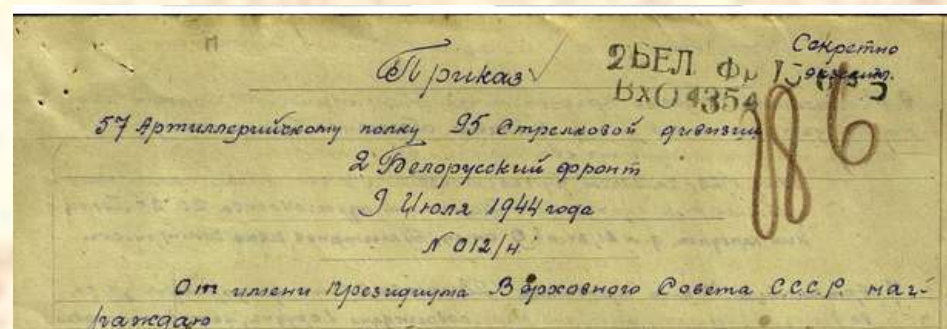 Секретно
Приказ
2 БЕЛ. Фр
экз.
Вх04354
186
57 Артиллерийскому полку 95 Стрелковой дивизии
2 Белорусский фронт
9 Июля 1944 года
N 012/н
От имени Президиума Верховного Совета С.С.С.Р. наг-
раждаю